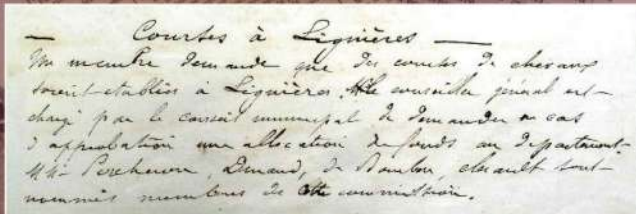 — Courses à Lignières —
Un membre demande que des courses de chevaux
soient établies à Lignières. Mr le conseiller général est
chargé par le conseil municipal de demander en cas
d'approbation une allocation de fonds au département.
MM. Percheron, Durand, de Bourbon, chenault sont
nommés membres de cette commission.